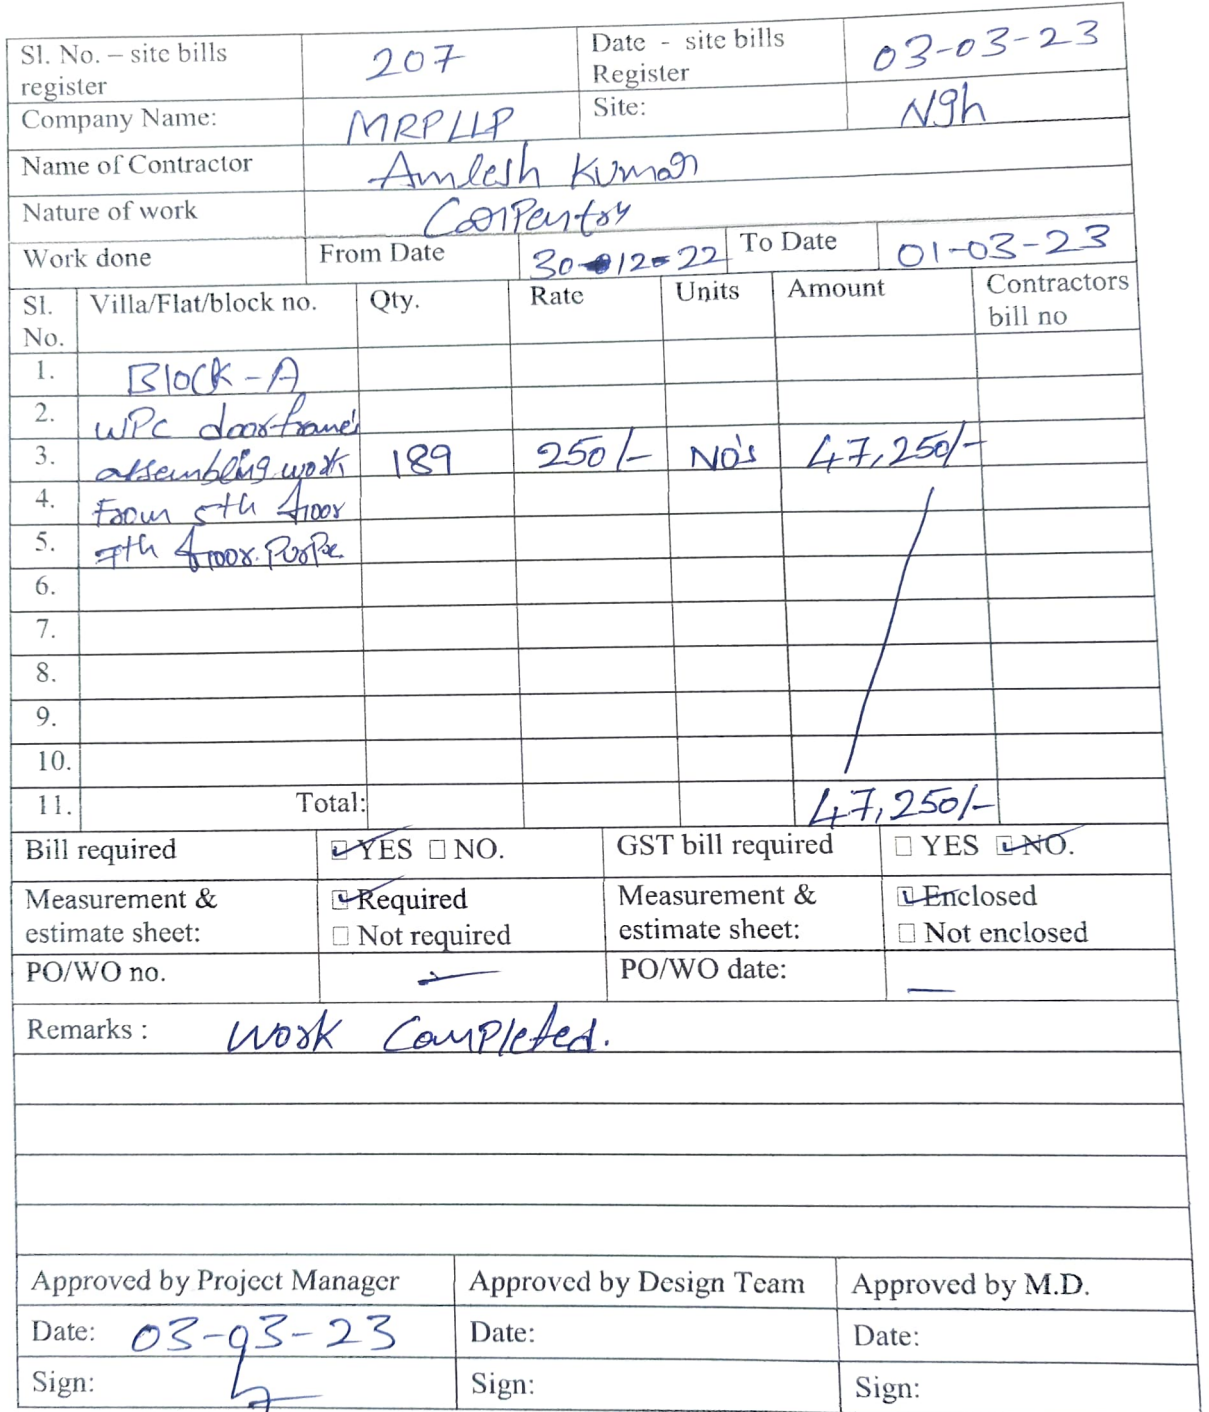 Sl. No. – site bills register 207 Date - site bills Register 03-03-23
Company Name: MRPLLP Site: Ngh
Name of Contractor Amlesh Kumar
Nature of work Carpentry
Work done From Date 30-12-22 To Date 01-03-23
Sl. No. Villa/Flat/block no. Qty. Rate Units Amount Contractors bill no
1. Block-A
2. WPC door frame's
3. assembling work 189 250/- No's 47,250/-
4. From 5th floor
5. 7th floor.
6.
7.
8.
9.
10.
11. Total: 47,250/-
Bill required YES NO. GST bill required YES NO.
Measurement & estimate sheet: Required Not required Measurement & estimate sheet: Enclosed Not enclosed
PO/WO no. — PO/WO date: —
Remarks : Work Completed.
Approved by Project Manager Approved by Design Team Approved by M.D.
Date: 03-03-23 Date: Date:
Sign: Sign: Sign: